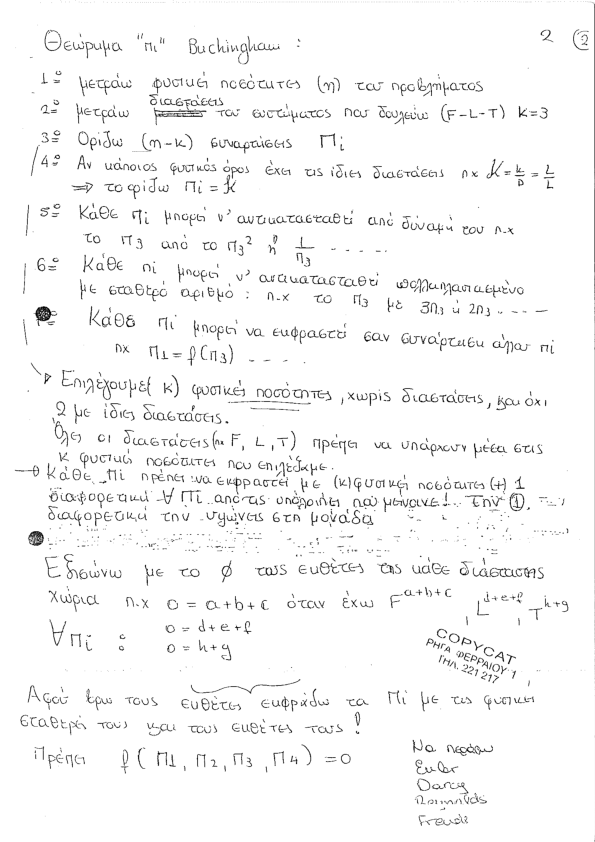 2 (2)
Θεώρημα "πι" Buckingham :
1º μετράω φυσικές ποσότητες (η) του προβλήματος
διαστάσεις
2º μετράω του συστήματος που δουλεύω (F-L-T) k=3
3º Ορίζω (η-κ) συναρτήσεις Πi
4º Αν κάποιος φυσικός όρος έχει τις ίδιες διαστάσεις πχ K = k/D = L/L
⇒ το ορίζω Πi = K
5º Κάθε Πi μπορεί ν' αντικατασταθεί από δύναμή του π.χ
το Π3 από το Π3² ή 1/Π3 - - - -
6º Κάθε πi μπορεί ν' αντικατασταθεί πολλαπλασιασμένο
με σταθερό αριθμό : π.χ το Π3 με 3Π3 ή 2Π3 - - - -
Κάθε Πi μπορεί να εκφραστεί σαν συνάρτηση άλλου πi
πχ Π1 = f(Π3) - - -
Επιλέγουμε( κ) φυσικές ποσότητες , χωρίς διαστάσεις , και όχι
2 με ίδιες διαστάσεις.
Όλες οι διαστάσεις (πχ F, L, T) πρέπει να υπάρχουν μέσα στις
κ φυσικές ποσότητες που επιλέξαμε.
Κάθε Πi πρέπει να εκφραστεί με (κ) φυσικές ποσότητες (+) 1
διαφορετική ∀ Πi από τις υπόλοιπες που μείνανε! Την (1),
διαφορετική την υψώνεις στη μονάδα
Εξισώνω με το 0 τους εκθέτες της κάθε διάστασης
χώρια π.χ 0 = a+b+c όταν έχω F^(a+b+c) , L^(d+e+f) , T^(h+g)
∀Πi : 0 = d+e+f
0 = h+g
COPYCAT
ΡΗΓΑ ΦΕΡΡΑΙΟΥ 1
ΤΗΛ. 221 217
Αφού βρω τους εκθέτες εκφράζω τα Πi με τις φυσικές
σταθερές τους και τους εκθέτες τους!
Πρέπει f ( Π1, Π2, Π3, Π4 ) = 0
Να
Euler
Darcy
Reynolds
Froude